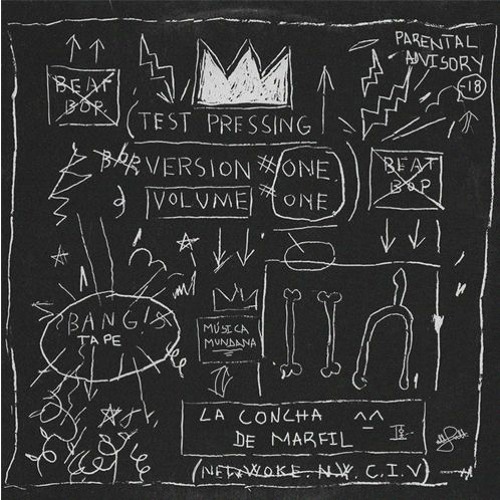 PARENTAL
ADVISORY
-18
BEAT
BOP
(TEST PRESSING
VERSION #ONE
VOLUME # ONE
BEAT
BOP
BANG!S
TAPE
MÚSICA
MUNDANA
LA CONCHA
DE MARFIL
C.I.V)